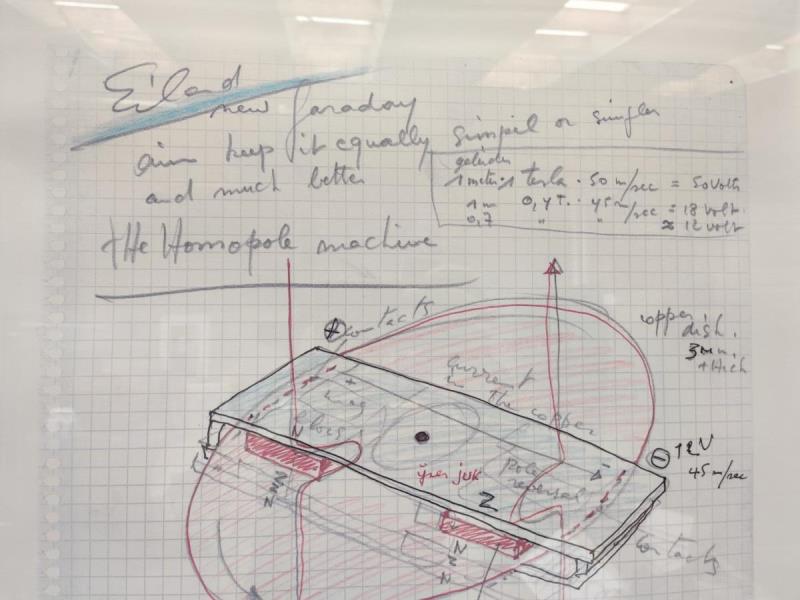 Eiland
new faraday
aim keep it equally simpel or simpler
and much better
the Homopole machine
geleider
1 meter · 1 Tesla · 50 m/sec = 50 Volts
1 m 0,4 T. · 45 m/sec = 18 volt.
0,7 " " ≈ 12 volt
contacts
+
copper
dish.
3 mm.
thick
current
in the copper
+
N
pole
reversal
-
⊖ 12V
45 m/sec
ijzer juk
Z
N
Z
N
N
Z
N
contacts